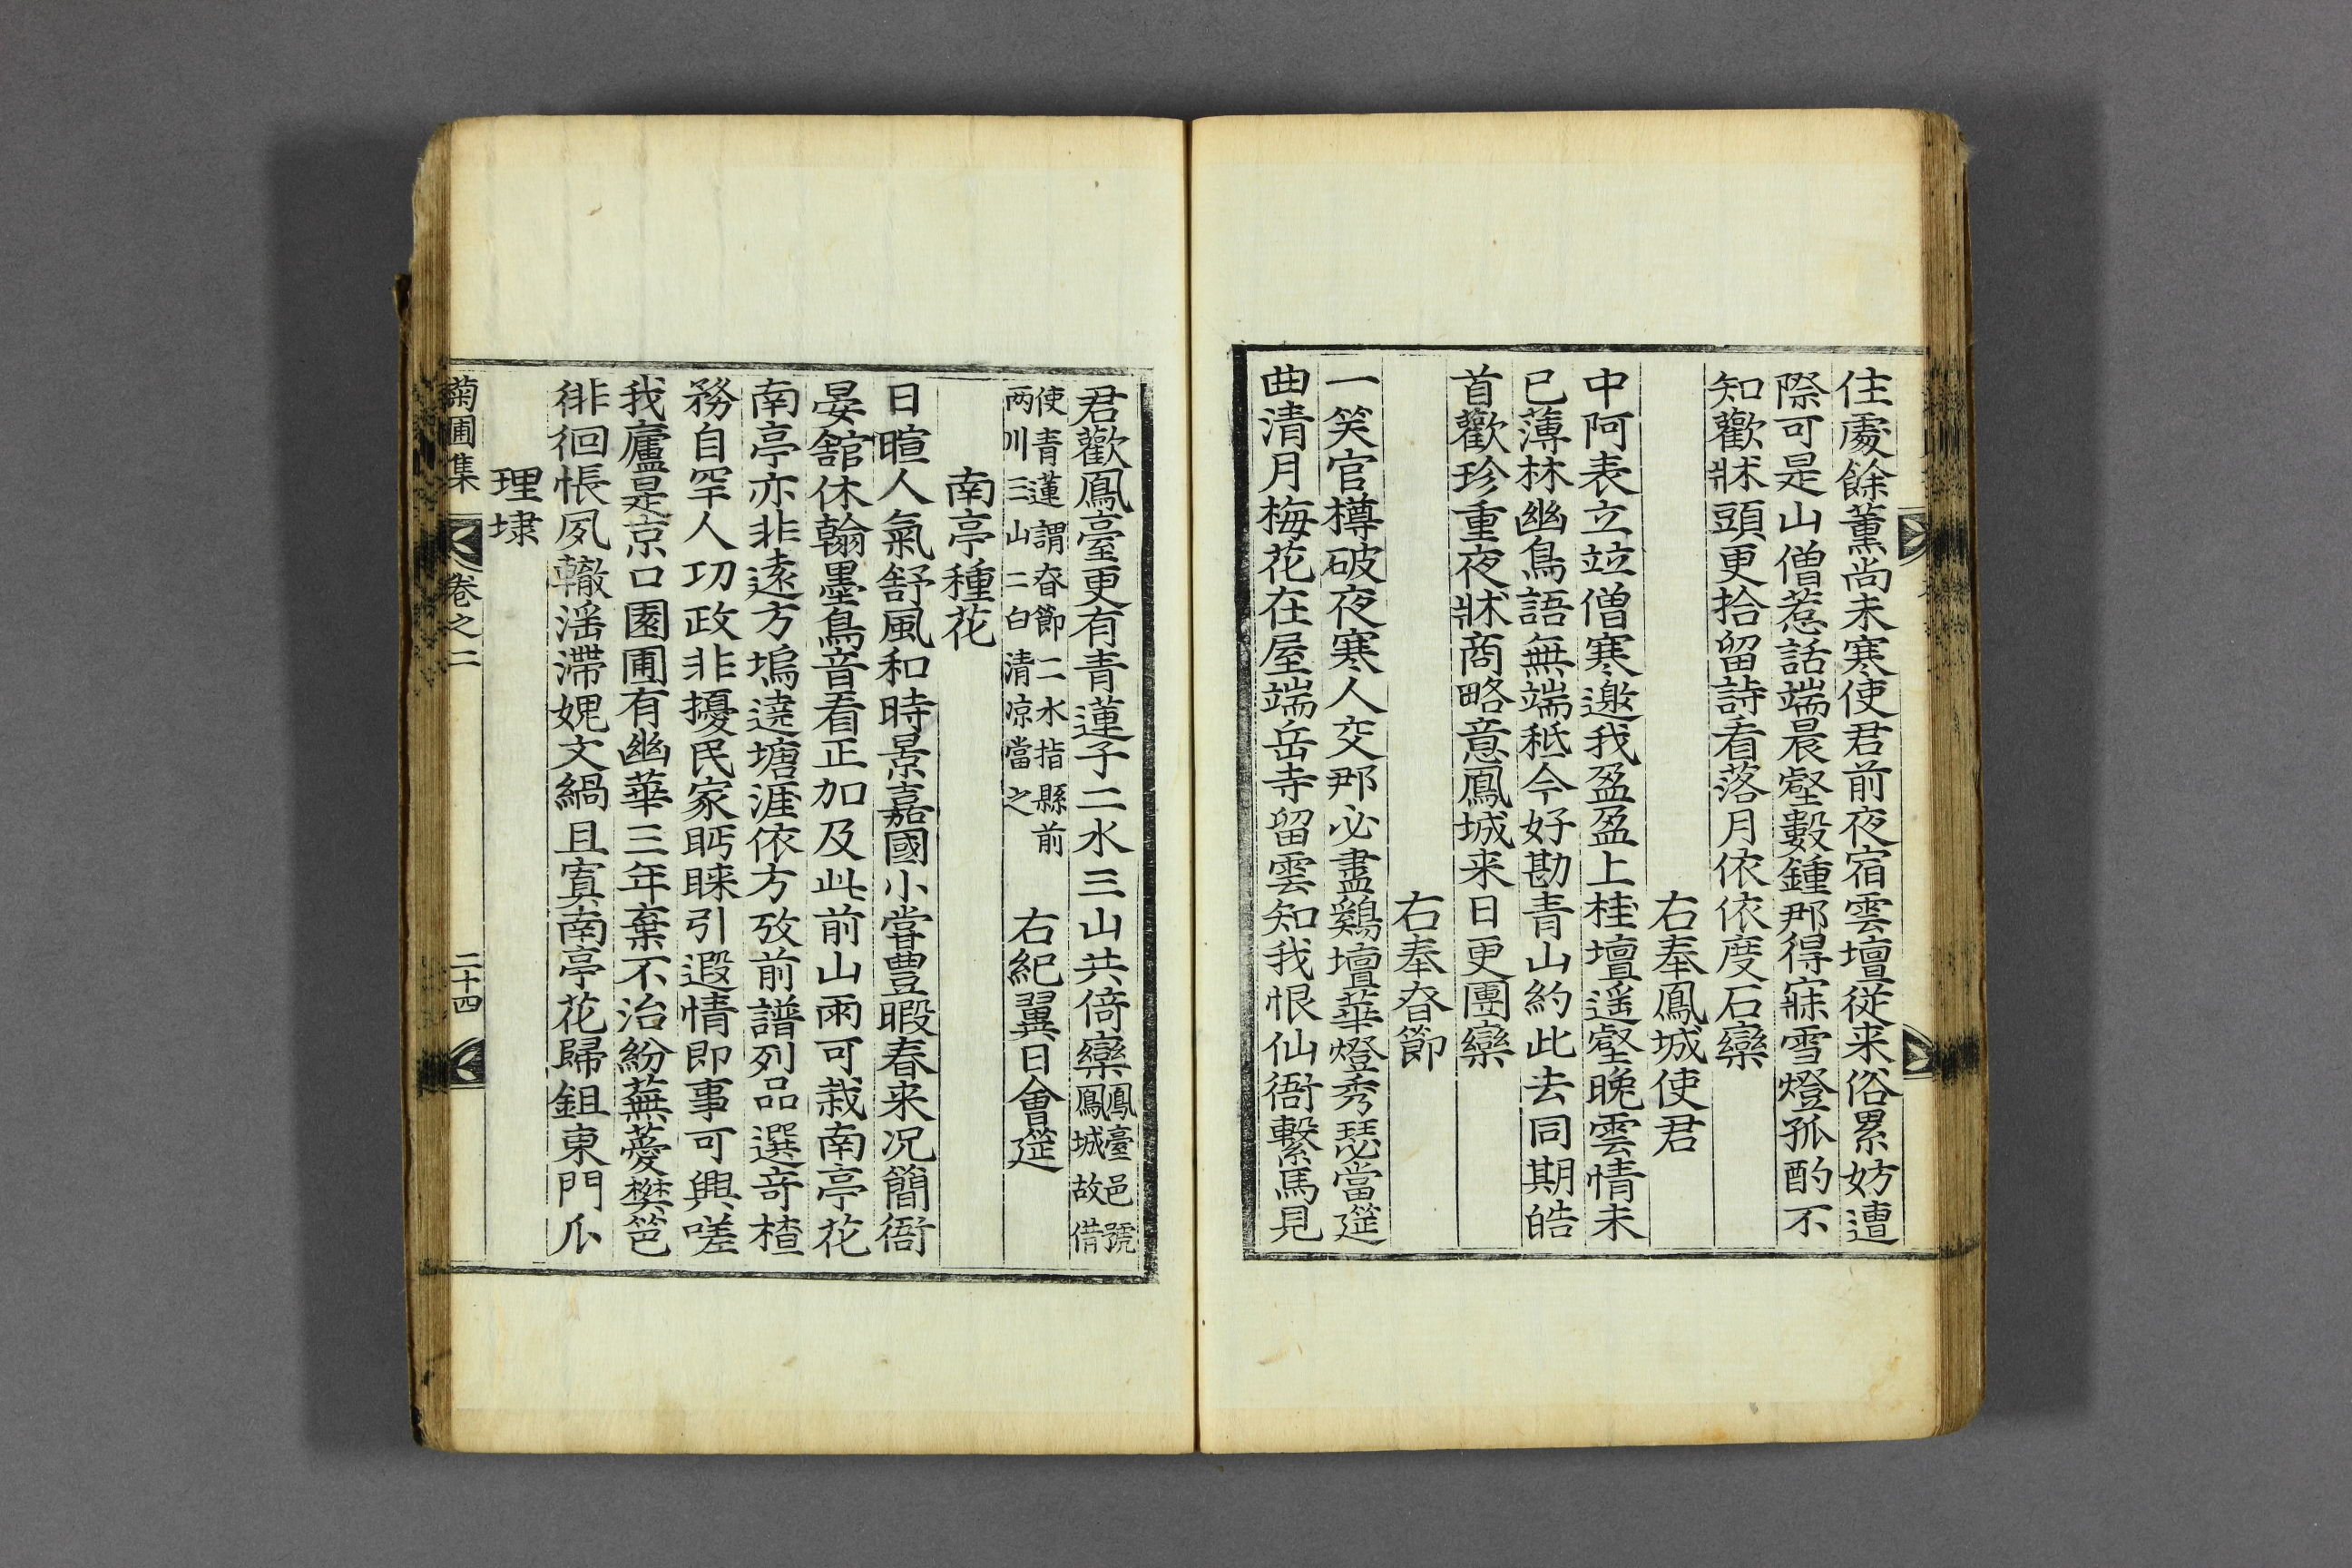 住處餘薰尚未寒使君前夜宿雲壇從来俗累妨遭
際可是山僧惹話端晨壑數鍾那得寐雪燈孤酌不
知歡牀頭更拾留詩看落月依依度石欒
右奉鳳城使君
中阿表立竝僧寒邀我盈盈上桂壇遥壑晚雲情未
已薄林幽鳥語無端秪今好勘青山約此去同期皓
首歡珍重夜牀商略意鳳城来日更團欒
右奉春節
一笑官樽破夜寒人交那必盡鷄壇華燈秀瑟當筵
曲清月梅花在屋端岳寺留雲知我恨仙衙繫馬見
君歡鳳臺更有青蓮子二水三山共倚欒鳳臺邑號
鳳城故借
使青蓮謂春節二水指縣前
两川三山二白清凉當之
右紀翼日會筵
南亭種花
日暄人氣舒風和時景嘉國小嘗豊暇春来况簡衙
晏舘休翰墨鳥音看正加及此前山雨可栽南亭花
南亭亦非遠方塢遶塘涯依方攷前譜列品選竒楂
務自罕人功政非擾民家眄睞引遐情即事可興嗟
我廬是京口園圃有幽華三年棄不治紛蕪蔓樊笆
徘徊悵夙轍滛滯媿文緺且寘南亭花歸鉏東門瓜
理埭
菊圃集
卷之二
二十四